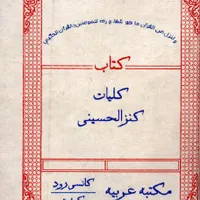 و ننزل من القرآن ما هو شفاء و رحمة للمؤمنين (القرآن الحكيم)
کتاب
کلیات
کنز الحسینی
مکتبه عربیه
کانسی روڈ